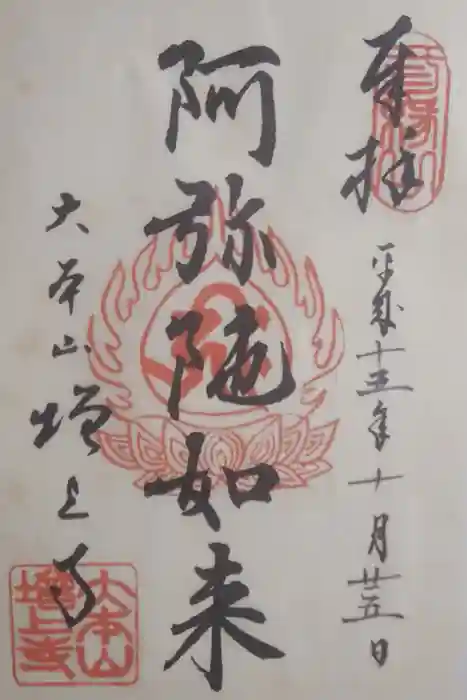 奉拝
平成十五年十月廿五日
阿弥陀如来
大本山増上寺
大本山
増上寺